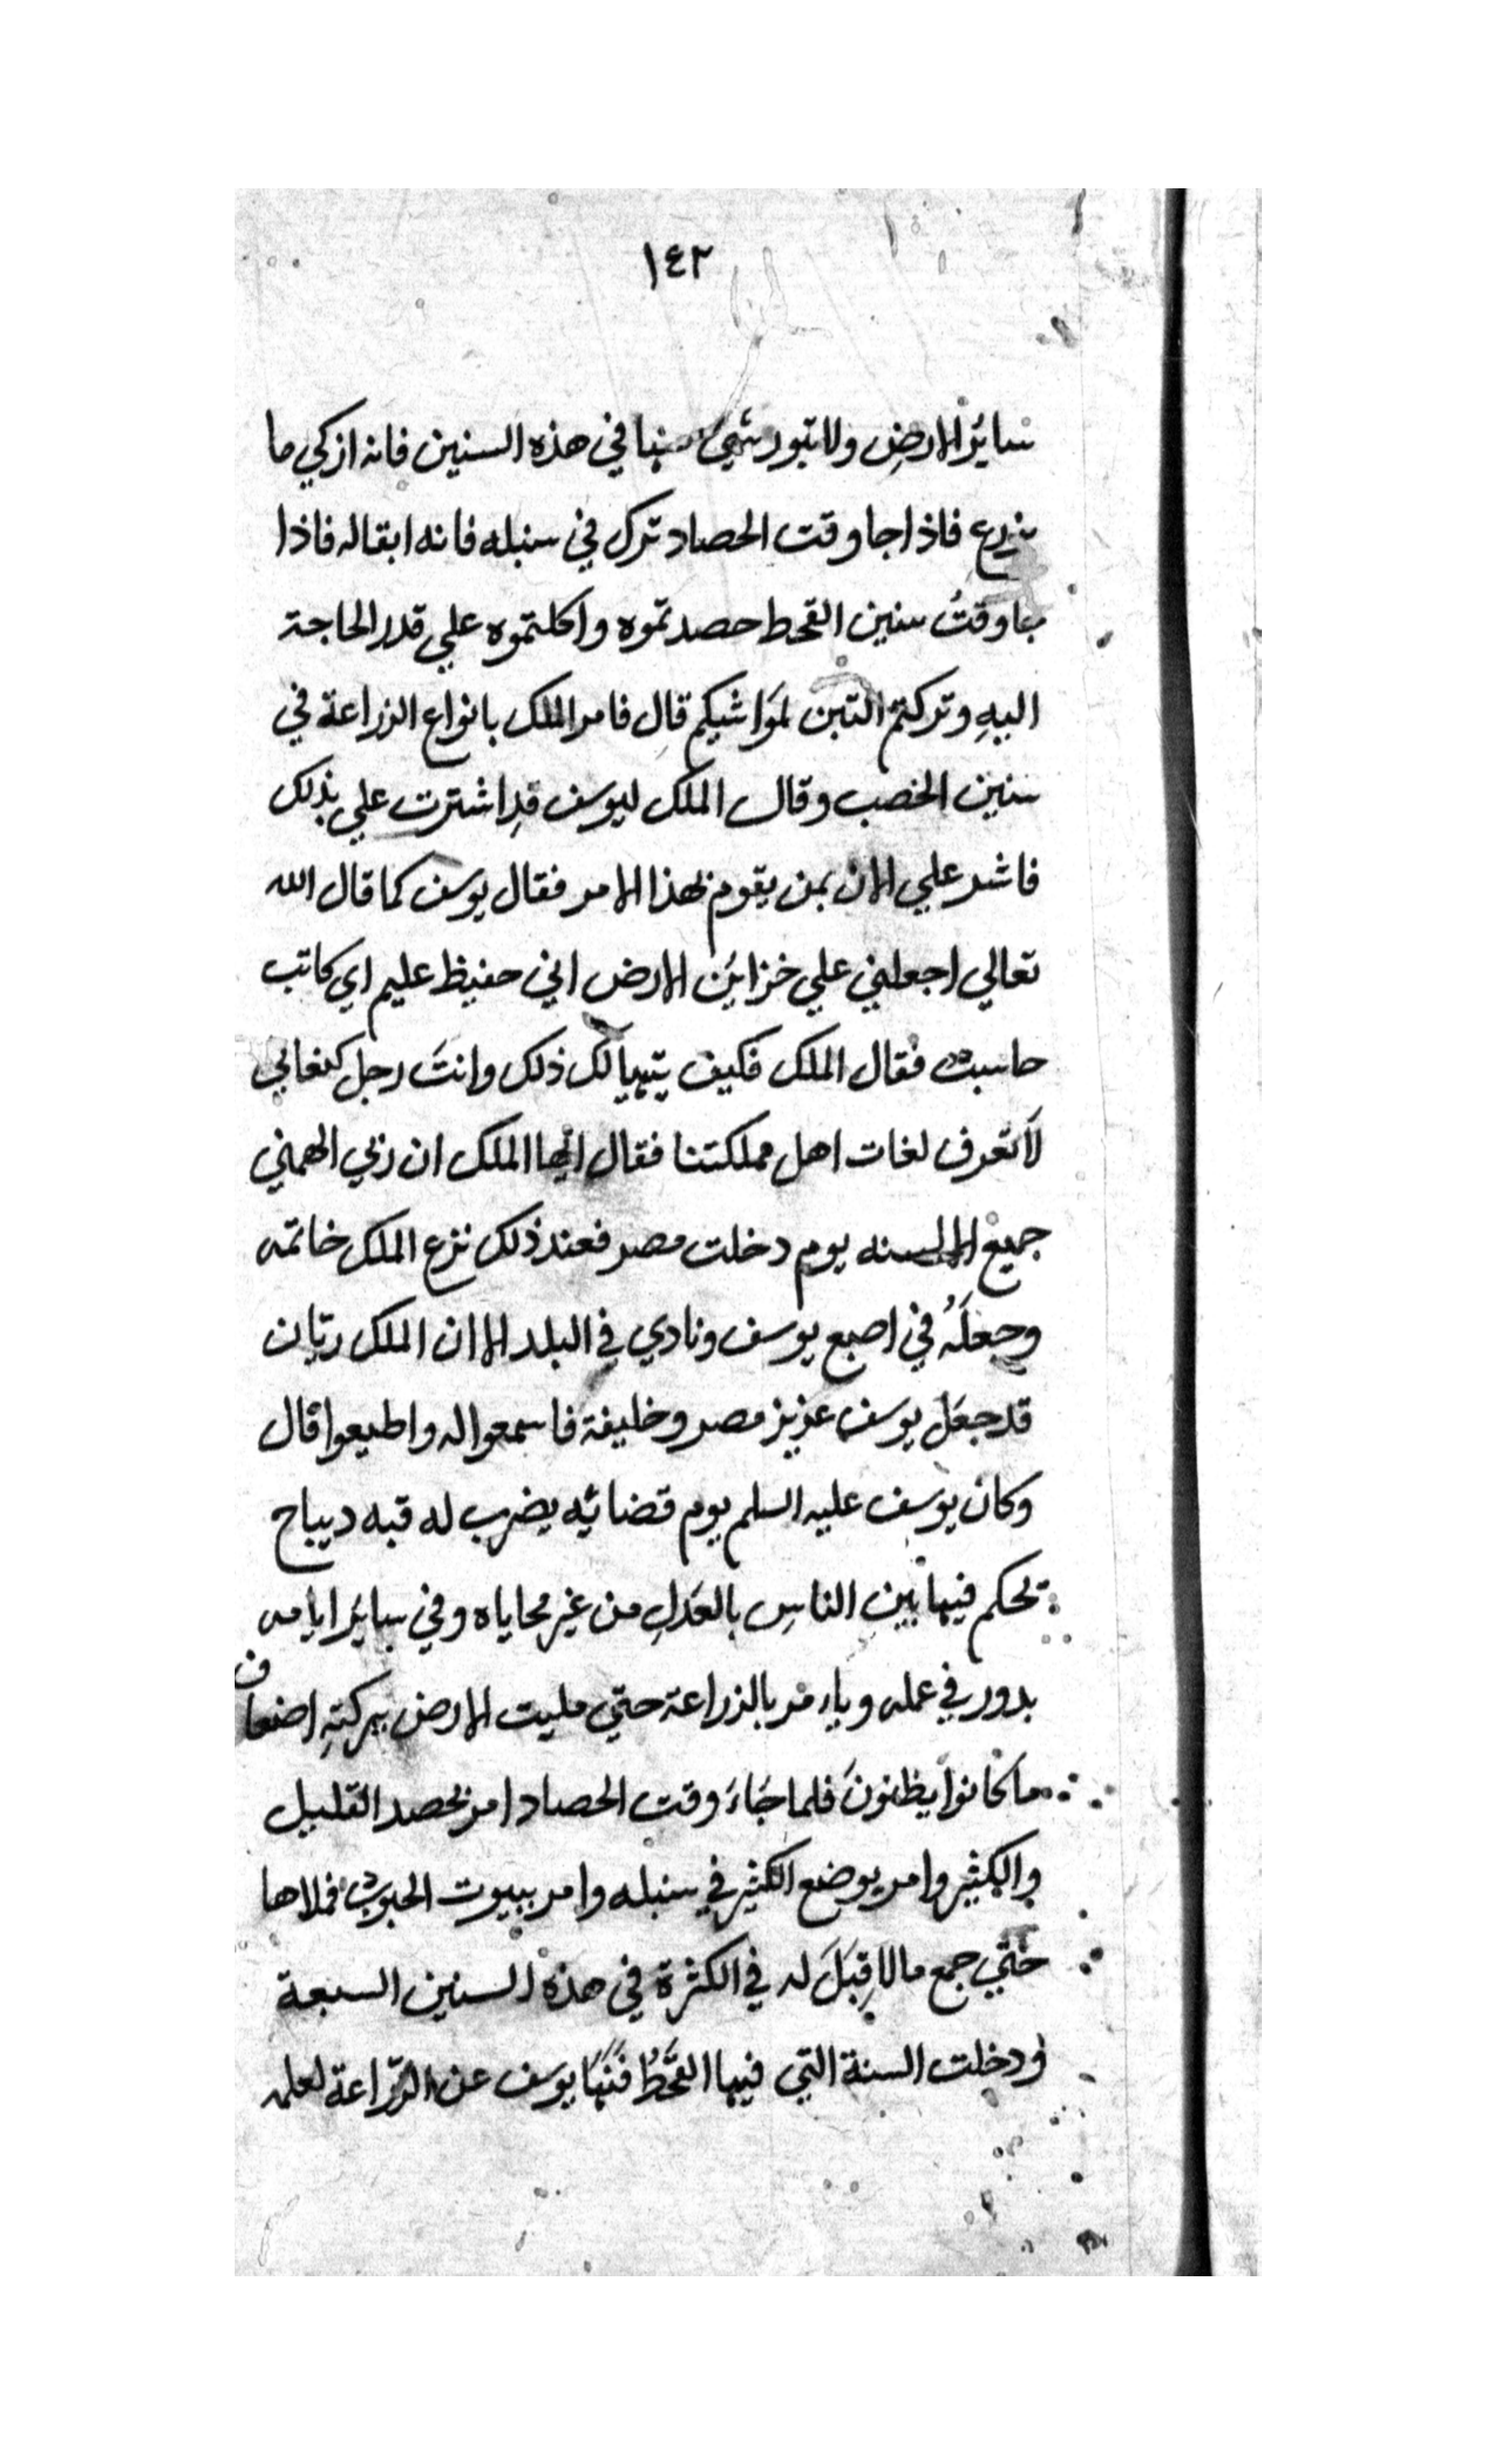 ١٤٢
سايرُ الارضِ ولا تبور شيئ منها في هذه السنين فانه ازكي ما
يزرع فاذا جا وقت الحصاد ترك في سنبله فانه ابقاله فاذا
جا وقتُ سنين القحط حصدتموه واكلتموه علي قدر الحاجة
اليهِ وتركتم التبن لمَواشيكم قال فامر الملك بانواع الزراعة في
سنين الخصب وقال الملك ليوسف قدِ اشترت علي بذلك
فاشر علي الان بمن يقوم بهذا الامر فقال يوسف كما قال الله
تعالي اجعلني علي خزاينَ الارض اني حفيظ عليم اي كاتب
حاسب فقال الملك فكيف يتهيا لك ذلك وانتَ رجل كنعاني
لَا تعرف لغات اهل مملكتنا فقال ايها الملك ان ربي الهمني
جميع الالسنه يوم دخلت مصر فعند ذلك نزع الملك خاتمه
وجعلَهُ في اصبع يوسف ونادي في البلد الا ان الملك ريّان
قد جعَل يوسف عزيز مصر وخليفة فاسمعوا له واطيعوا قال
وكان يوسف عليه السلم يوم قضائه يضرب له قبه ديباج
يحكم فيها بين الناسِ بالعَدلِ من غير محاياه وفي سايرَ ايامه
يدور في عمله وياءمر بالزراعة حتي مليت الارض ببركتهِ اضعاف
ما كانوا يظنونَ فلما جَاءَ وقت الحصاد امر بحصد القليل
والكثير وامر يوضع الكثير في سنبله وامر ببيوت الحبوب فملاها
حتي جمع مالا قِبَلَ له في الكثرة في هذه السنين السبعة
ودخلت السنة التي فيها القَحطُ فَنَهَا يوسف عن الزّراعة لعلمه